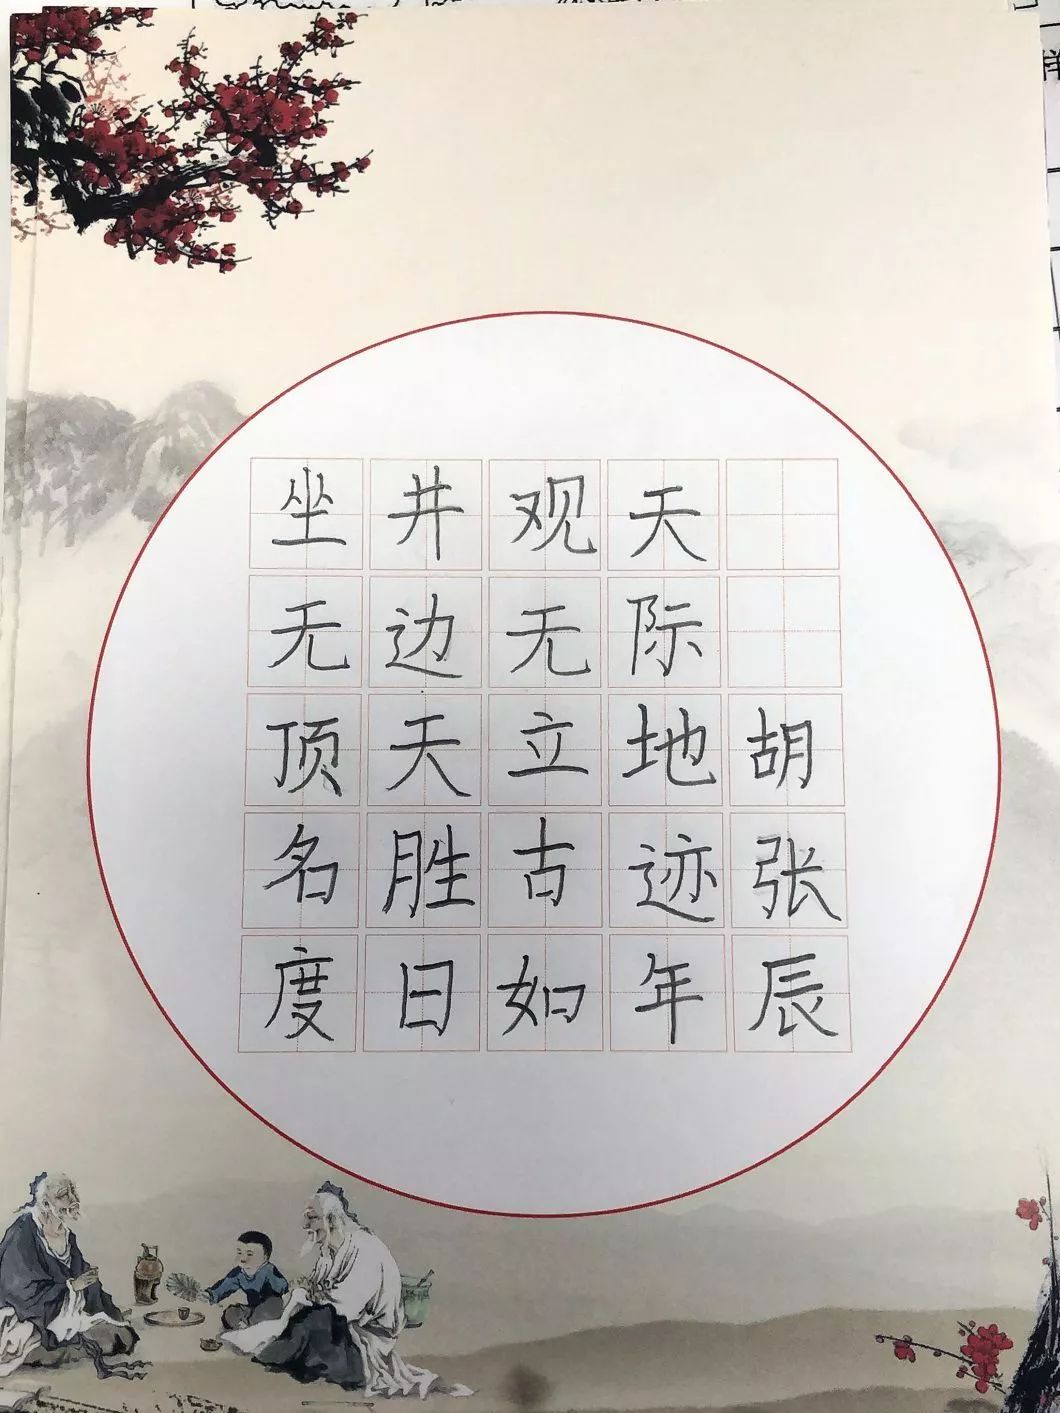 坐井观天
无边无际
顶天立地胡
名胜古迹张
度日如年辰